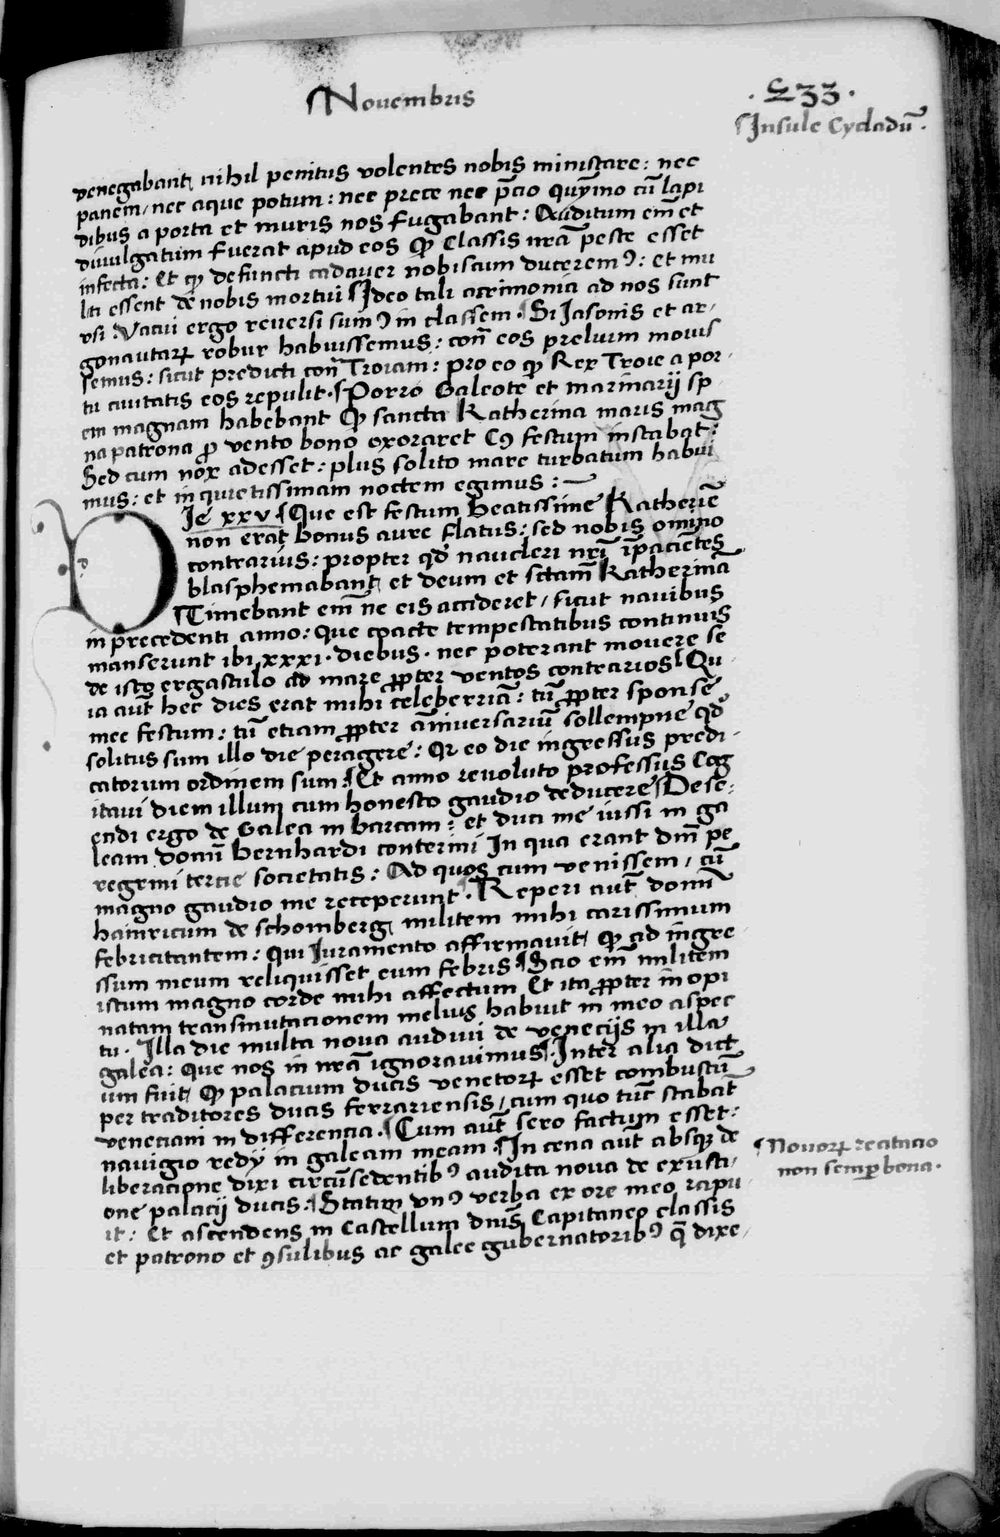 Novembris
·433·
Insule Cycladū.
venegabant, nihil penitus volentes nobis ministrare: nec
panem, nec aque potum: nec prece nec p̄cio quȳmo cū lapi
dibus a porta et muris nos fugabant: Auditum em̄ et
divulgatum fuerat apud eos ꝙ classis nrā peste esset
infecta: Et ꝙ defuncti cadaver nobiscum duceremꝰ: et mu
lti essent de nobis mortui Ideo tali acrimonia ad nos sunt
vsi: Vacui ergo reversi sumꝰ in classem. Si Jasonis et ar-
gonautarꝝ robur habuissemus: con̄ eos prelium movis
semus: sicut predicti con̄ Troiam: pro eo ꝙ Rex Troie a por-
tu civitatis eos repulit. Porro Galeote et marinarij sp-
em magnam habebant ꝙ sancta Katherina maris mag
na patrona ꝓ vento bono exoraret Cꝰ festum instabat:
Sed cum nox adesset: plus solito mare turbatum habui
mus: et inquietissimam noctem egimus:
Die xxv. Que est festum beatissime Katherīe
non erat bonus aure flatus: sed nobis omīno
contrarius: propter qd̄ naucleri nrī īpaciētes
blasphemabant, et deum et sctam̄ Katherinā
Timebant em̄ ne eis accideret, sicut navibus
in precedenti anno: que coacte tempestatibus continuis
manserunt ibi xxxi. diebus. nec poterant movere se
de isto ergastulo ad mare ꝓpter ventos contrarios Qu-
ia aut̄ hec dies erat mihi celeberriā: tū ꝓpter sponse
mee festum: tū etiam ꝓpter āniversariū sollempne qd̄
solitus sum illo die peragere: Qr eo die ingressus predi-
catorum ordinem sum: Et anno revoluto professus Cog
itavi diem illum cum honesto gaudio deducere Desc-
endi ergo de Galea in barcam: et duci me iussi in ga
leam domī bernhardi contermi In qua erant dnī pe
regrini tercie societatis: Ad quos cum venissem, cū
magno gaudio me receperunt. Reperi aut̄ domī
hainricum de schomberg, militem mihi carissimum
febricitantem: Qui Juramento affirmavit, ꝙ ad ingre-
ssum meum reliquisset eum febris Scio em̄ militem
istum magno corde mihi affectum Et ita ꝓpter inopi
natam transmutacionem melius habuit in meo aspec
tu. Illa die multa nova audivi de venecijs in illa
galea: que nos in nrā ignoravimus. Inter alia dict
um fuit, ꝙ palacium ducis venetorꝝ esset combustū
per traditores ducis ferrariensis, cum quo tūc stabāt
veneciani in differencia. Cum aut̄ sero factum esset:
navigio redij in galeam meam. In cena aut̄ absqꝫ de
liberacione dixi circūsedentibꝰ audita nova de exusti-
one palacij ducis: Statim vnꝰ verba ex ore meo rapu
it: Et ascendens in Castellum dnīs Capitaneo classis
et patrono et ꝯsulibus ac galee gubernatoribꝰ q̄ dixe-
Novorꝝ recitacio
non semꝑ bona.